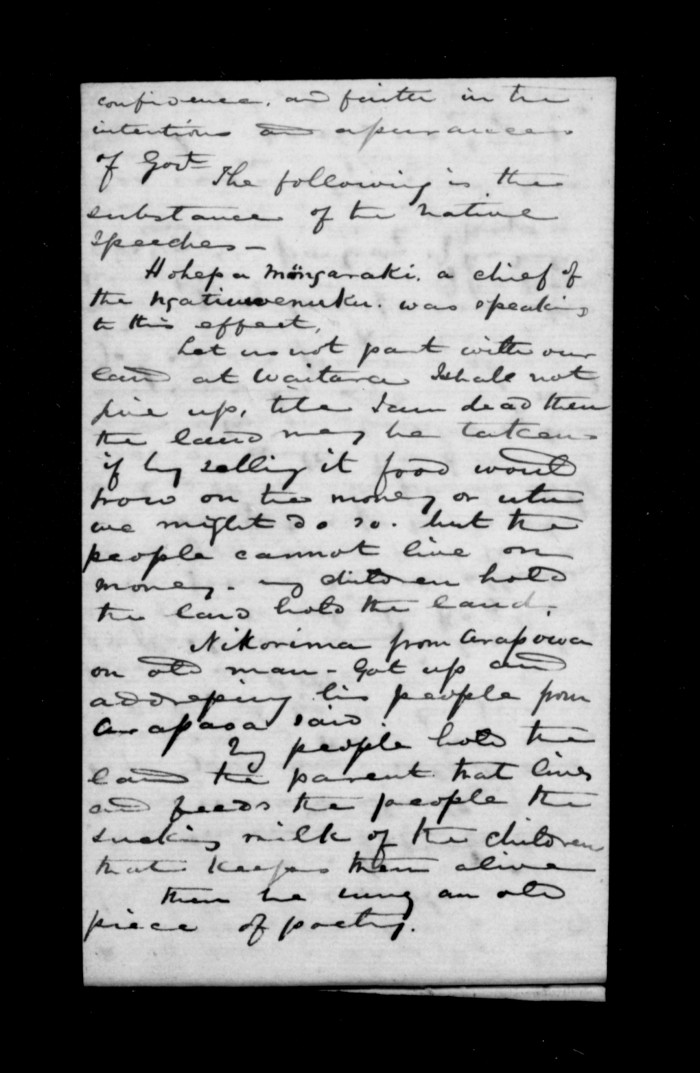 confidence. and faith in the
intentions and assurances
of Govt The following is the
substance of the Native
Speeches —
Hohepa Mongaraki. a chief of
the Ngatiuwenuku. was speaking
to this effect,
Let us not part with our
land at Waitara I shall not
give up, till I am dead then
the land may be taken
if by selling it food would
grow on the money or
we might do so. but the
people cannot live on
money. my children hold
the land hold the land.
Nikorima from Arapowa
an old man - Got up and
addressing his people from
Arapaoa said
My people hold the
land the parent that lives
and feeds the people the
sucking milk of the children
that keeps them alive
then he sung an old
piece of poetry.